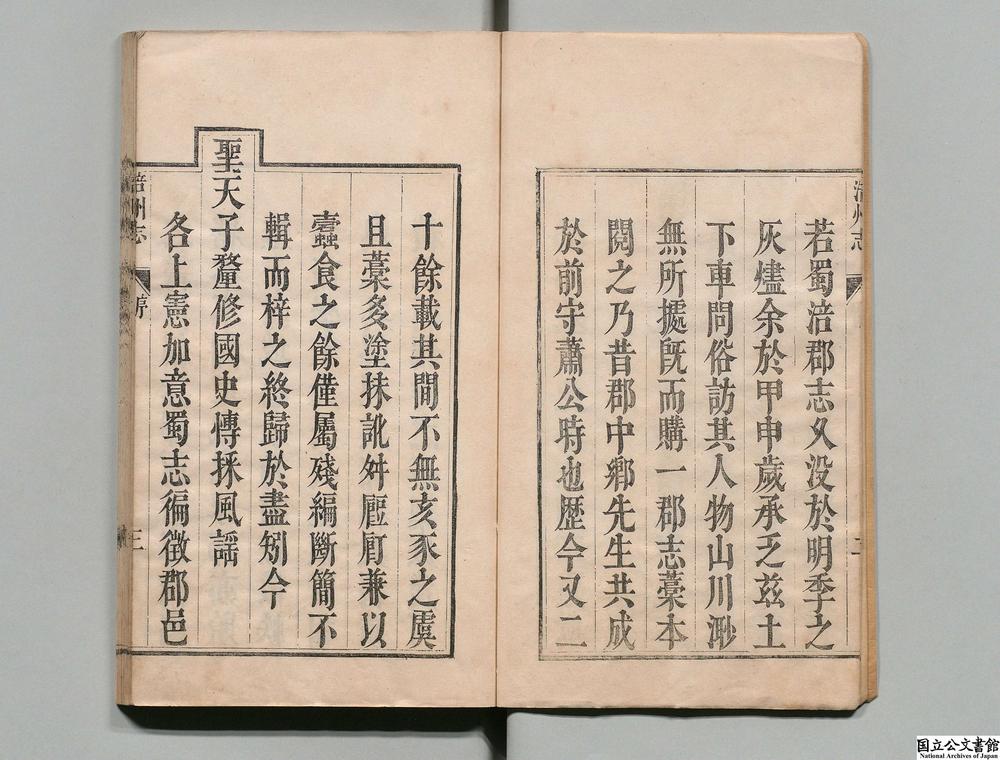 涪州志
二
若蜀涪郡志久没於明季之
灰燼余於甲申歲承乏茲土
下車問俗訪其人物山川渺
無所據旣而購一郡志藁本
閱之乃昔郡中鄕先生共成
於前守蕭公時也歷今又二
十餘載其間不無亥豕之虞
且藁多塗抹訛舛壓𠩄兼以
蠹食之餘僅屬殘編斷簡不
輯而梓之終歸於盡矧今
聖天子釐修國史慱採風謡
各上憲加意蜀志徧徵郡邑
涪州志
序
三
国立公文書館
National Archives of Japan